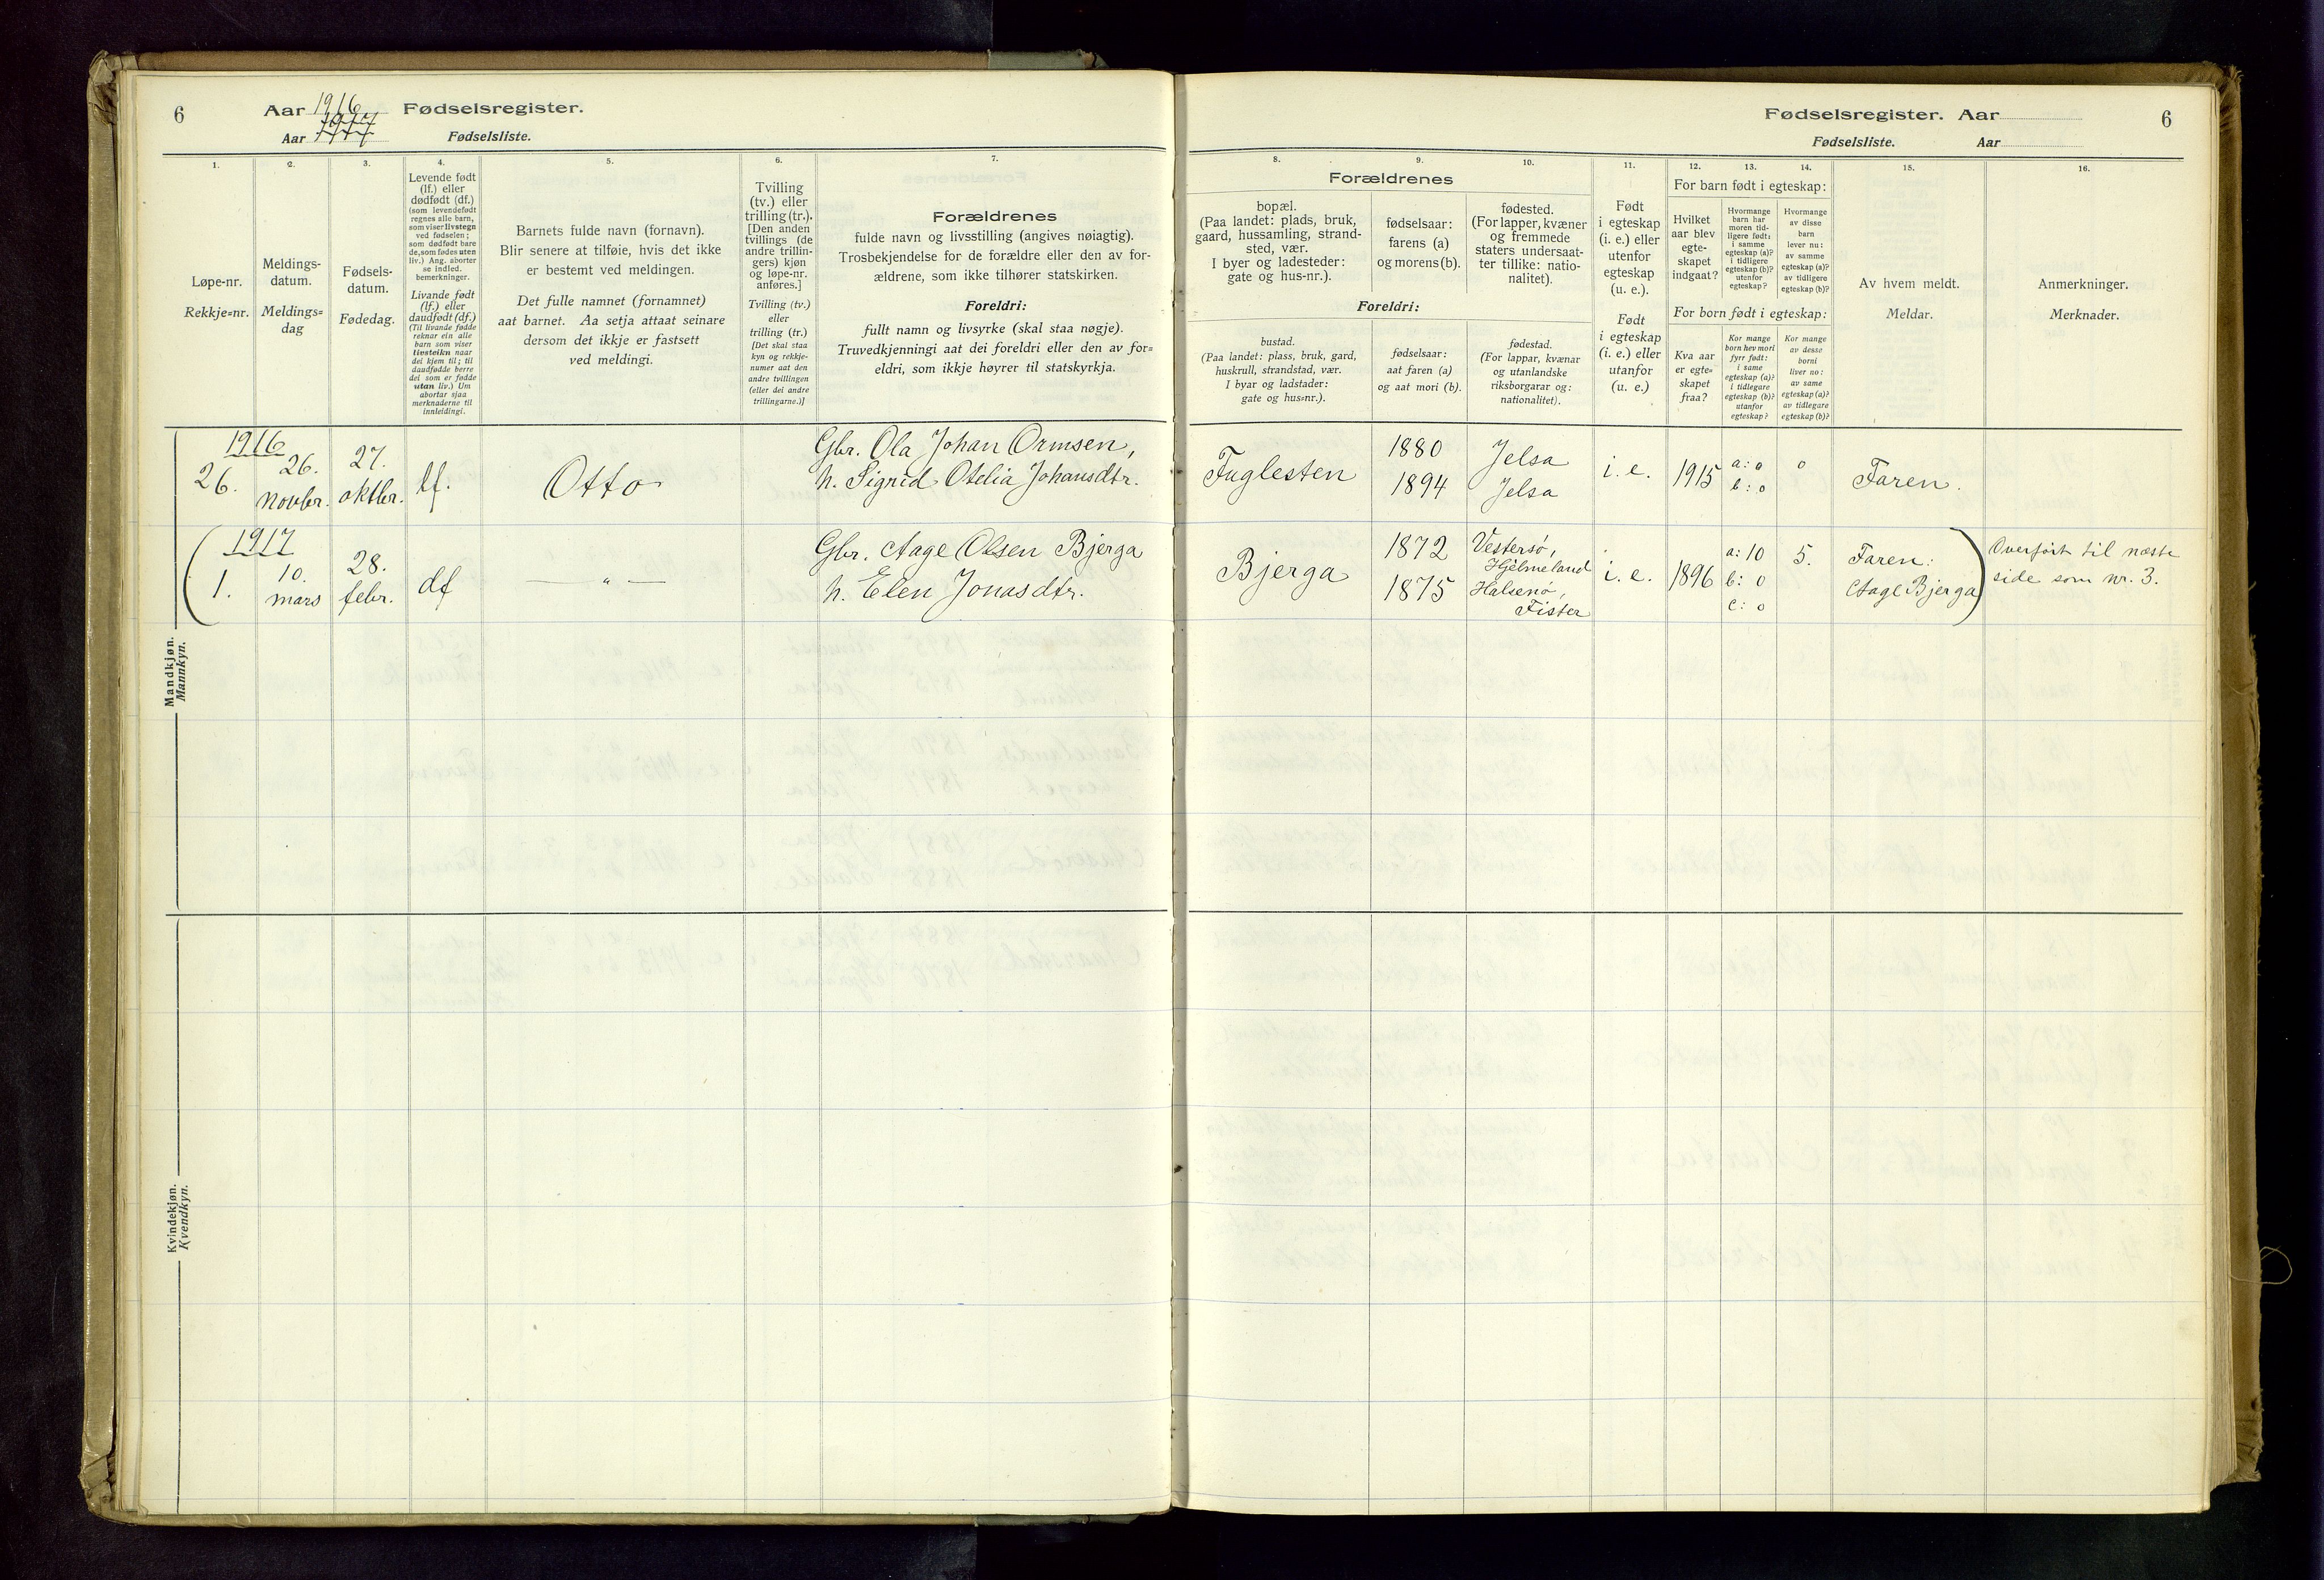 6
Aar 1916 Fødselsregister.
Aar 1917 Fødselsliste.
Fødselsregister. Aar
6
Fødselsliste. Aar
1.
Løpe-nr.
Rekkje=nr.
2.
Meldings-
datum.
Meldings=
dag
3.
Fødsels-
datum.
Fødedag.
4.
Levende født
(lf.) eller
dødfødt (df.)
(som levendefødt
regnes alle barn,
som viser livstegn
ved fødselen;
som dødfødt bare
de, som fødes uten
liv.) Ang. aborter
se indled.
bemerkninger.
Livande født
(lf.) eller
daudfødt (df.)
(Til livande fødde
reknar ein alle
barn som viser
livsteikn naar
dei kjem til; til
daudfødde berre
dei som er fødde
utan liv.) Um
abortar sjaa
merknaderne til
innleidingi.
5.
Barnets fulde navn (fornavn).
Blir senere at tilføie, hvis det ikke
er bestemt ved meldingen.
Det fulle namnet (fornamnet)
aat barnet. Aa setja attaat seinare
dersom det ikkje er fastsett
ved meldingi.
6.
Tvilling
(tv.) eller
trilling (tr.).
[Den anden
tvillings (de
andre trillin-
gers) kjøn
og løpe-nr.
anføres.]
Tvilling (tv.)
eller
trilling (tr.)
[Det skal staa
kyn og rekkje-
numer aat den
andre tvillingen
(eller dei andre
trillingarne.)]
7.
Forældrenes
fulde navn og livsstilling (angives nøiagtig).
Trosbekjendelse for de forældre eller den av for-
ældrene, som ikke tilhører statskirken.
Foreldri:
fullt namn og livsyrke (skal staa nøgje).
Truvedkjenningi aat dei foreldri eller den av for=
eldri, som ikkje høyrer til statskyrkja.
Forældrenes
8.
bopæl.
(Paa landet: plads, bruk,
gaard, hussamling, strand-
sted, vær.
I byer og ladesteder:
gate og hus-nr.).
9.
fødselsaar:
farens (a)
og morens (b).
10.
fødested.
(For lapper, kvæner
og fremmede
staters undersaat-
ter tillike: natio-
nalitet).
Foreldri:
bustad.
(Paa landet: plass, bruk, gard,
huskrull, strandstad, vær.
I byar og ladstader:
gate og hus=nr.).
fødselsaar:
aat faren (a)
og aat mori (b).
fødestad.
(For lappar, kvænar
og utanlandske
riksborgarar og:
nationalitet).
11.
Født
i egteskap
(i. e.) eller
utenfor
egteskap
(u. e.).
Født
i egteskap
(i. e.) eller
utanfor
(u. e.)
12.
13.
14.
For barn født i egteskap:
Hvilket
aar blev
egte-
skapet
indgaat?
Hvormange
barn har
moren tid-
ligere født:
i samme
egteskap (a)?
i tidligere
egteskap (b)?
utenfor
egteskap?
Hvormange
av disse
barn
lever nu:
av samme
egteskap (a)?
av tidligere
egteskap (b)?
For born født i egteskap:
Kva aar
er egte=
skapet
fraa?
Kor mange
born hev mori
fyrr født:
i same
egteskap (a)?
i tidlegare
egteskap (b)?
utanfor
egteskap?
Kor mange
av desse
borni
liver no:
av same
egteskap (a)?
av tidlegare
egteskap (b)?
15.
Av hvem meldt.
Meldar.
16.
Anmerkninger.
Merknader.
Mandkjøn.
Mannkyn.
1916
26. 26. novbr. 27. oktbr. lf. Otto
Gbr. Ola Johan Ormsen,
h. Sigrid Otelia Johansdtr.
Fuglesten
1880 Jelsa
1894 Jelsa
i. e. 1915
a: 0
b: 0
0
Faren.
(1917
1. 10. mars 28. febr. df — „ —
Gbr. Aage Olsen Bjerga
h. Elen Jonasdtr.
Bjerga
1872 Vestersø, Hjelmeland
1875 Halsenø, Fister
i. e. 1896
a: 10
b: 0
c: 0
5.
Faren:
Aage Bjerga)
Overført til næste
side som nr. 3.
Kvindekjøn.
Kvendkyn.